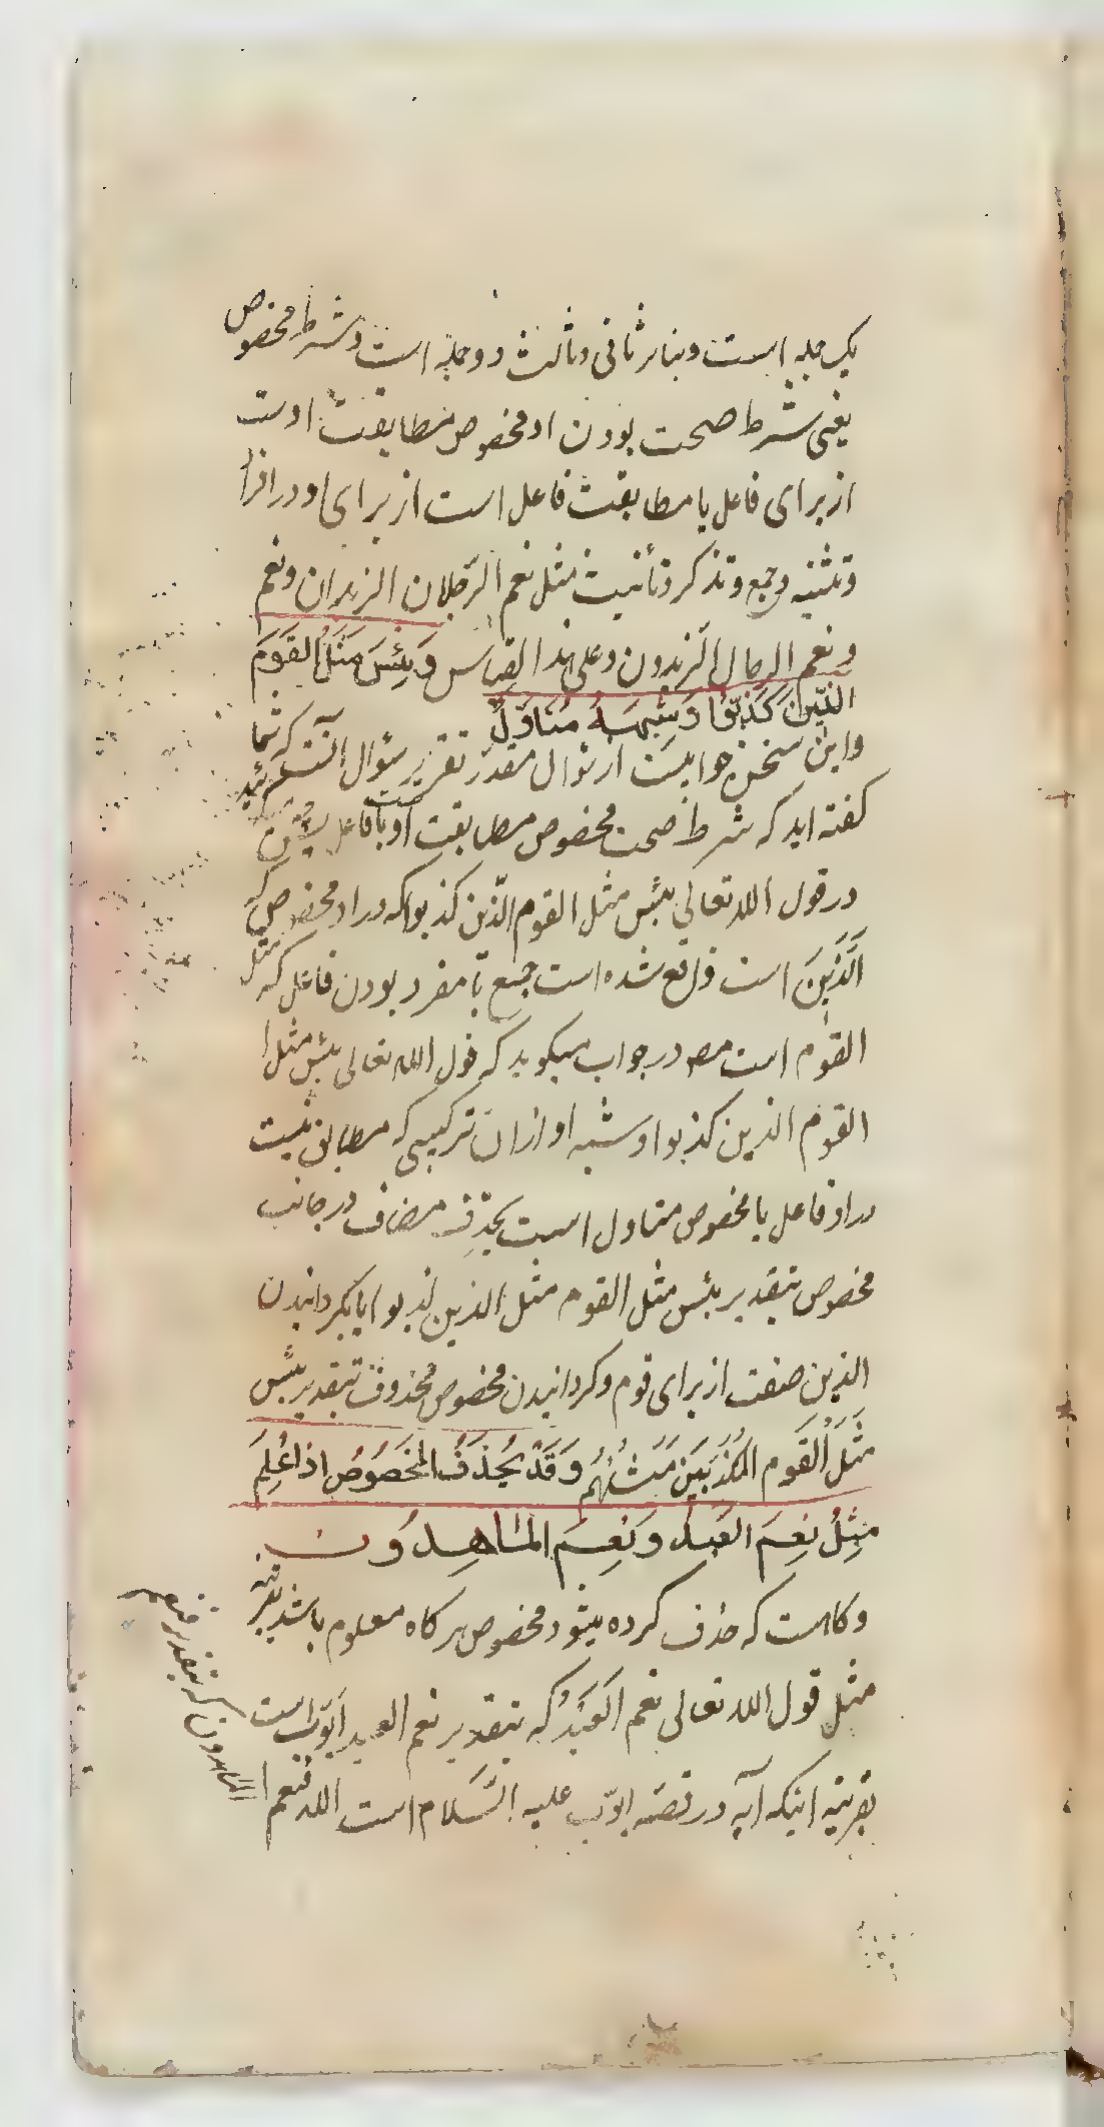 یک جمله است و بنابر ثانی و ثالث دو جمله است و شرط مخصوص
یعنی شرط صحت بودن او مخصوص مطابقت اوست
از برای فاعل یا مطابقت فاعل است از برای او در افراد
و تثنیه و جمع و تذکیر و تأنیث مثل نعم الرّجلان الزیدان و نعم
و نعم الرجال الزیدون و علی هذا القیاس وَ بِئسَ مَثَلُ القَومِ
الَّذِینَ کَذَّبُوا وَ شِبهُهُ مُتَأَوَّلٌ
و این سخن جوابیست از سؤال مقدّر تقریر سؤال آنست که شما
گفته اید که شرط صحت مخصوص مطابقت او با فاعل است
در قول الله تعالی بئس مثل القوم الّذین کذبوا که در او مخصوص که
الَّذِینَ است واقع شده است جمع با مفرد بودن فاعل که مثل
القوم است مص در جواب میگوید که قول الله تعالی بئس مثل ا
القوم الذین کذبوا و شبه او از ان ترکیبی که مطابق نیست
در او فاعل با مخصوص متاول است بحذف مضاف در جانب
مخصوص بتقدیر بئس مثل القوم مثل الذین کذبوا یا بگردانیدن
الذین صفت از برای قوم و گردانیدن مخصوص محذوف بتقدیر بئس
مَثَلُ القَومِ المُکَذِّبِینَ مَثَلُهُم وَ قَد یُحذَفُ المَخصُوصُ اذا عُلِمَ
مِثلُ نِعمَ العَبدُ وَ نِعمَ المَاهِدُونَ
و گاهست که حذف کرده میشود مخصوص هرگاه معلوم باشد بقرینه
مثل قول الله تعالی نعم العَبدُ که بتقدیر نعم العبد ایّوب است
بقرینه اینکه آیه در قصّه ایوّب علیه السَّلام است الله فنعم
الماهدون که بتقدیر فنعم